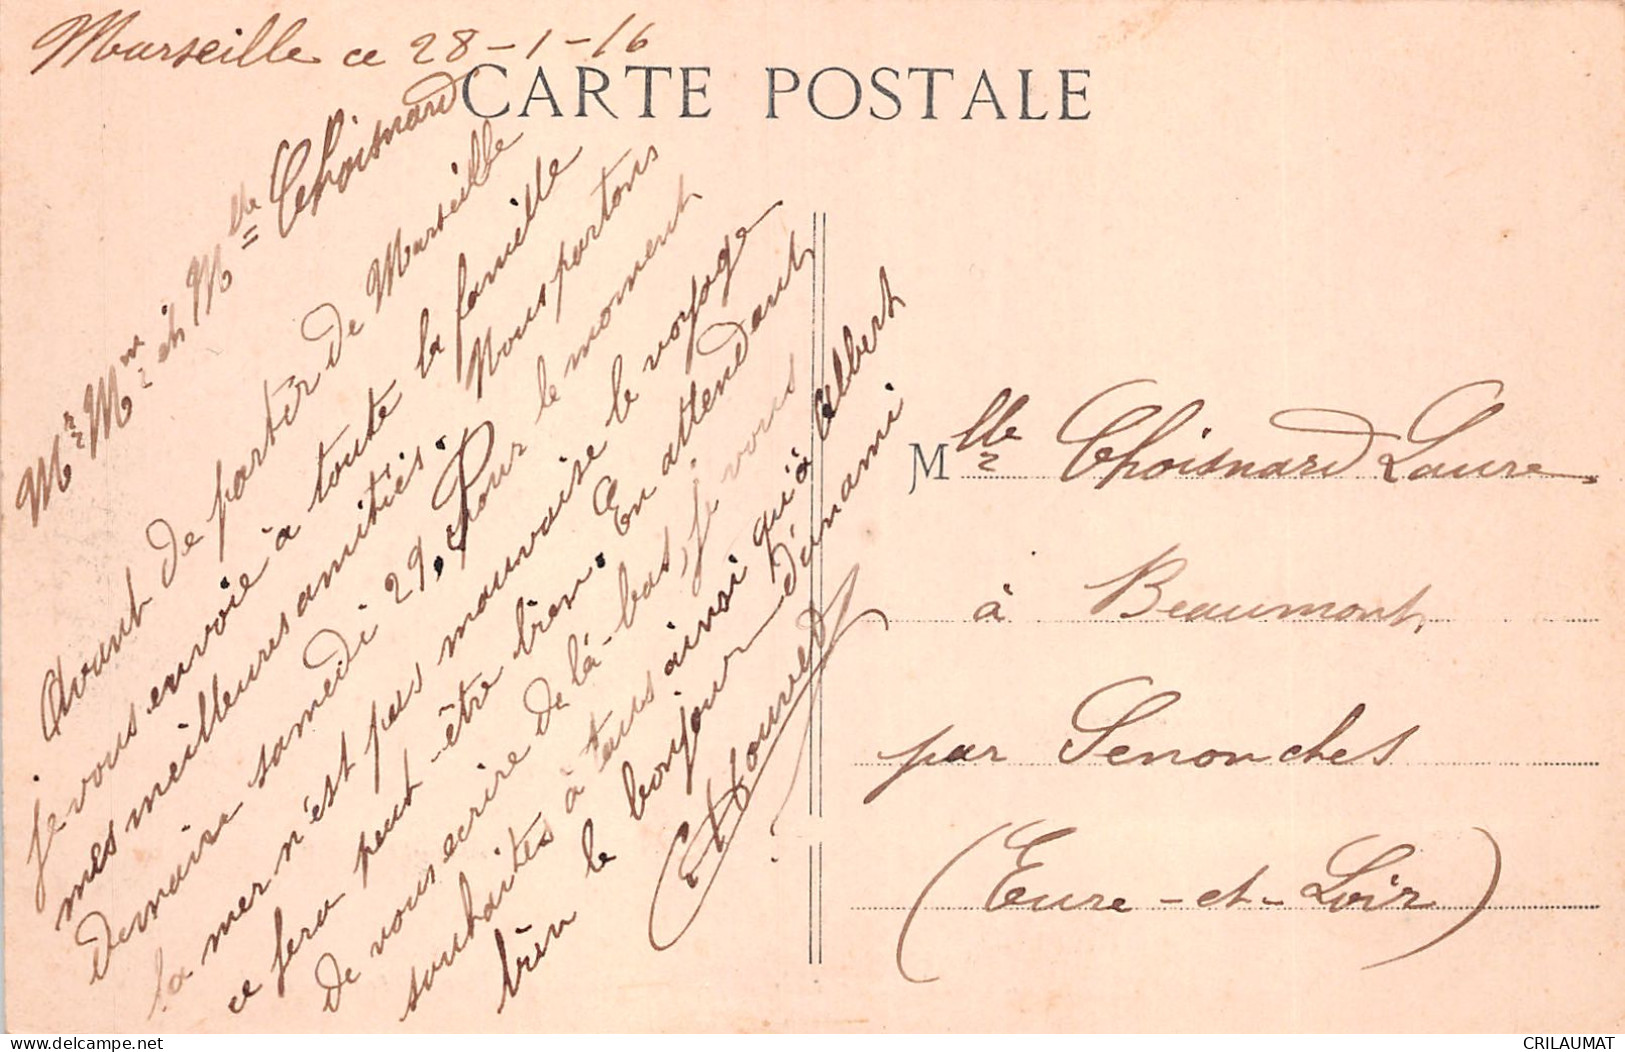 Marseille ce 28-1-16
CARTE POSTALE
Mr Mme et Mlle Choisnard
Avant de partir de Marseille
je vous envoie à toute la famille
mes meilleures amitiés. Nous partons
demain samedi 29. Pour le moment
la mer n'est pas mauvaise le voyage
ce sera peut-être bien. En attendant
de vous ecrire de là-bas, je vous
souhaites à tous ainsi qu'à Albert
bien le bonjour d'un ami
Mlle Choisnard Laure
à Beaumont
par Senonches
(Eure-et-Loir)
delcampe.net
CRILAUMAT